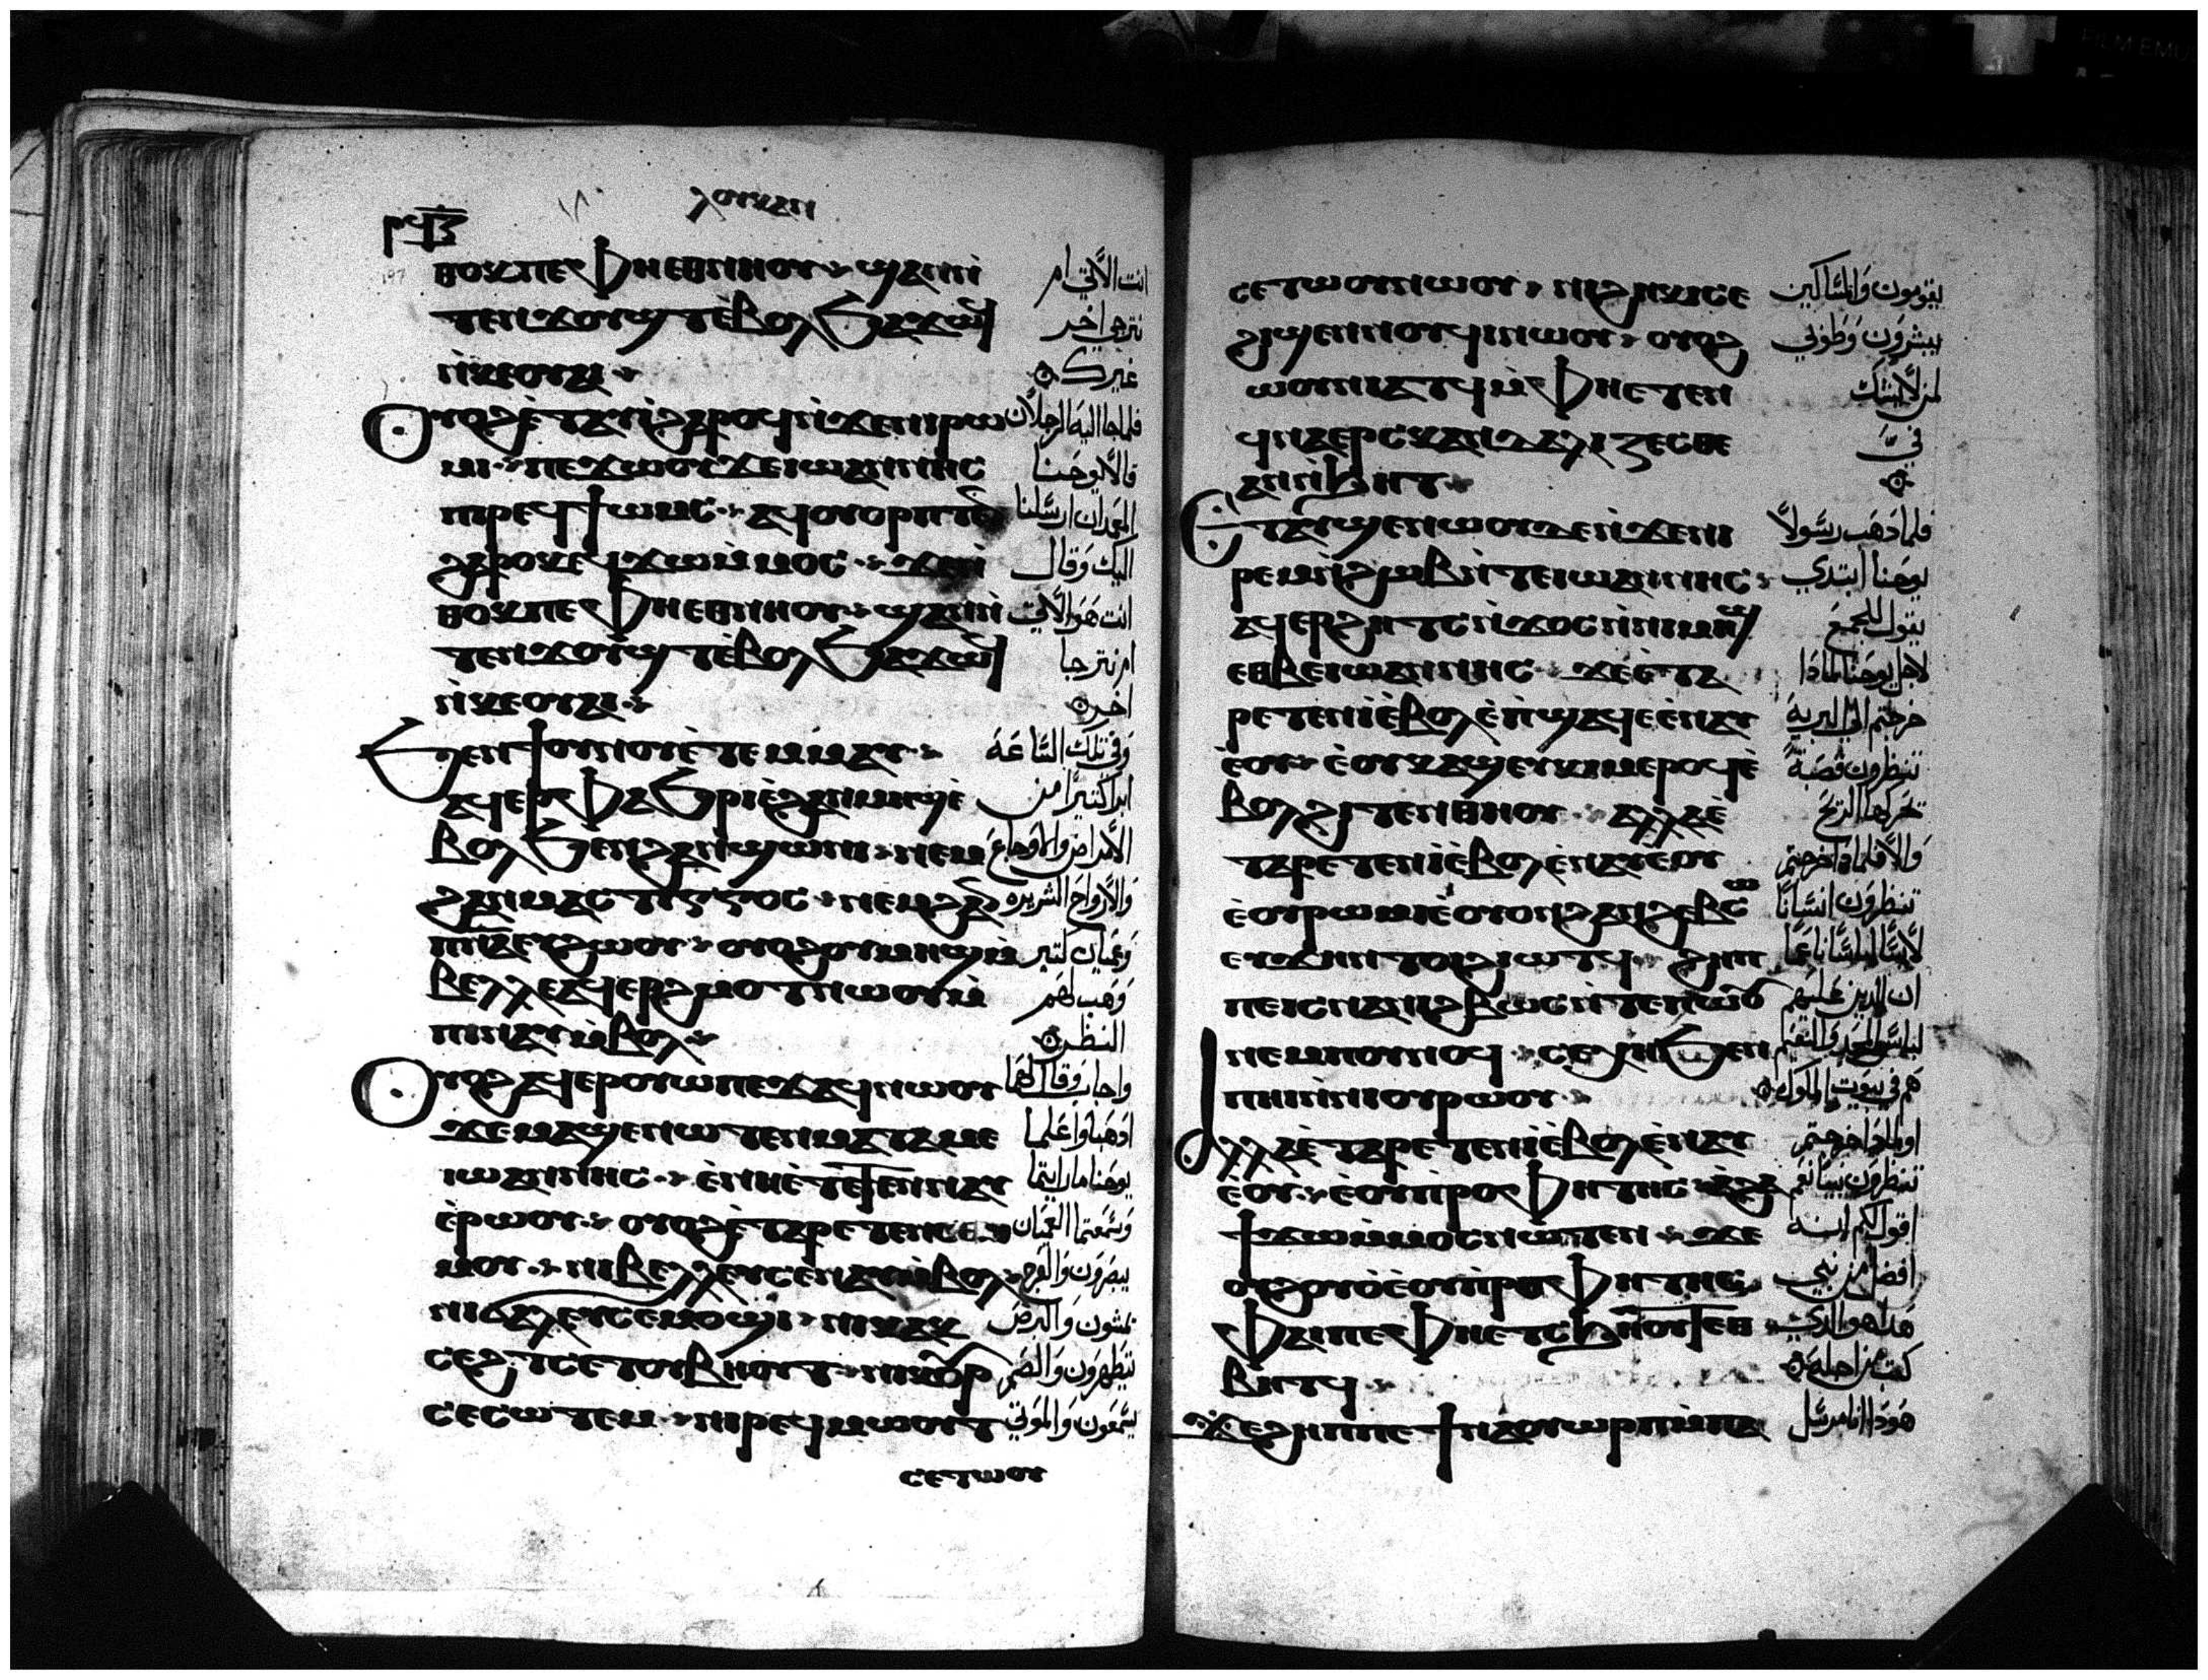 ⲗⲟⲩⲕⲁⲛ
ⲣϥⲍ
ⲛⲑⲟⲕ ⲡⲉ ⲫⲏⲉⲑⲛⲏⲟⲩ ϣⲁⲛ ⲛ̀
ⲧⲉⲛϫⲟⲩϣⲧ ⲉ̀ⲃⲟⲗ ϧⲁϫⲱϥ
ⲛ̀ⲕⲉⲟⲩⲁⲓ
ⲟⲩⲟϩ ⲉ̀ⲧⲁⲩⲓ̀ ϩⲁⲣⲟϥ ⲛ̀ϫⲉ ⲛⲓⲣⲱ
ⲙⲓ ⲡⲉϫⲱⲟⲩ ϫⲉ ⲓⲱⲁⲛⲛⲏⲥ
ⲡⲓⲣⲉϥϯⲱⲙⲥ ⲁϥⲟⲩⲟⲣⲡⲧⲉⲛ
ϩⲁⲣⲟⲕ ⲉϥϫⲱ ⲙ̀ⲙⲟⲥ ϫⲉ ⲛ̀
ⲑⲟⲕ ⲡⲉ ⲫⲏⲉⲑⲛⲏⲟⲩ ϣⲁⲛ ⲛ̀
ⲧⲉⲛϫⲟⲩϣⲧ ⲉ̀ⲃⲟⲗ ϧⲁϫⲱϥ
ⲛ̀ⲕⲉⲟⲩⲁⲓ
ϧⲉⲛ ϯⲟⲩⲛⲟⲩ ⲉ̀ⲧⲉⲙⲙⲁⲩ
ⲁϥⲉⲣⲫⲁϧⲣⲓ ⲉ̀ϩⲁⲛⲙⲏϣ ⲉ̀
ⲃⲟⲗ ϧⲉⲛ ϩⲁⲛϣⲱⲛⲓ ⲛⲉⲙ
ϩⲁⲛⲙⲁⲥⲧⲓⲅⲅⲟⲥ ⲛⲉⲙ ϩⲁⲛ
ⲡ̅ⲛ̅ⲁ̅ ⲉⲩϩⲱⲟⲩ ⲟⲩⲟϩ ⲟⲩⲙⲏϣ ⲙ̀
ⲃⲉⲗⲗⲉ ⲁϥⲉⲣϩⲙⲟⲧ ⲛⲱⲟⲩ ⲙ̀
ⲡⲓⲛⲁⲩ ⲙ̀ⲃⲟⲗ
ⲟⲩⲟϩ ⲁϥⲉⲣⲟⲩⲱ ⲡⲉϫⲁϥ ⲛⲱⲟⲩ
ϫⲉ ⲙⲁϣⲉⲛⲱⲧⲉⲛ ⲙⲁⲧⲁⲙⲉ
ⲓⲱⲁⲛⲛⲏⲥ ⲉ̀ⲛⲏⲉ̀ⲧⲉⲧⲉⲛⲛⲁⲩ
ⲉ̀ⲣⲱⲟⲩ ⲟⲩⲟϩ ⲉ̀ⲧⲁⲣⲉⲧⲉⲛⲥⲟⲑ
ⲙⲟⲩ ⲛⲓⲃⲉⲗⲗⲉⲩ ⲥⲉⲛⲁⲩ ⲙ̀ⲃⲟⲗ
ⲛⲓϭⲁⲗⲉⲩ ⲥⲉⲙⲟϣⲓ ⲛⲓⲕⲁⲕ
ⲥⲉϩⲧ ⲥⲉⲧⲟⲩⲃⲏⲟⲩⲧ ⲛⲓⲕⲟⲩⲣ
ⲥⲉⲥⲱⲧⲉⲙ ⲛⲓⲣⲉϥⲙⲱⲟⲩⲧ
ⲥⲉⲧⲱⲟⲩ
انت الاتي ام
نترجي اخر
غيرك
فلما جا اليه الرجلان
قالا يوحنا
المعمدان ارسلنا
اليك وقال
انت هو الاتي
ام نترجا
اخر
وفي تلك الساعة
ابرا كثيرا من
الامراض والاوجاع
والارواح الشريره
وعميان كثير
ووهب لهم
النظر
واجاب وقال لهما
ادهبا واعلما
يوحنا ما رايتما
وسمعتما العميان
يبصرون والعرج
يمشون والبرص
يتطهرون والصم
يسمعون والموتي
ⲥⲉⲧⲱⲟⲩⲛⲱⲟⲩ ⲛⲓϩⲏⲕⲓ ⲥⲉ
ϩⲓϣⲉⲛⲛⲟⲩϥⲓ ⲛⲱⲟⲩ ⲟⲩⲟϩ
ⲱⲟⲩⲛⲓⲁⲧϥ ⲙ̀ⲫⲏⲉⲧⲉⲛ
ϥⲛⲁⲉⲣⲥⲕⲁⲛⲇⲁⲗⲓⲍⲉⲥⲑⲉ
ⲁⲛ ⲛ̀ϧⲏⲧ
ⲉⲧⲁⲩϣⲉⲛⲱⲟⲩ ⲇⲉ ⲛ̀ϫⲉ ⲛⲓ
ⲣⲉⲙⲛ̀ϩⲱⲃ ⲛ̀ⲧⲉ ⲓⲱⲁⲛⲛⲏⲥ
ⲁϥⲉⲣϩⲏⲧⲥ ⲛ̀ϫⲟⲥ ⲛ̀ⲛⲓⲙⲏϣ
ⲉⲑⲃⲉ ⲓⲱⲁⲛⲛⲏⲥ ϫⲉ ⲉ̀ⲧⲁ
ⲣⲉⲧⲉⲛⲓ̀ ⲉ̀ⲃⲟⲗ ⲉ̀ⲡϣⲁϥⲉ ⲉ̀ⲛⲁⲩ
ⲉ̀ⲟⲩ ⲉ̀ⲟⲩⲕⲁϣ ⲉⲩⲕⲓⲙ ⲉⲣⲟϥ ⲉ̀
ⲃⲟⲗ ϩⲓⲧⲉⲛ ⲑⲏⲟⲩ ⲁⲗⲗⲁ ⲉ̀
ⲧⲁⲣⲉⲧⲉⲛⲓ̀ ⲉ̀ⲃⲟⲗ ⲉ̀ⲛⲁⲩ ⲉ̀ⲟⲩ
ⲉ̀ⲟⲩⲣⲱⲙⲓ ⲉ̀ⲟⲩⲟⲛ ϩⲁⲛϩⲉⲃⲥⲱ
ⲉⲩϫⲏⲛ ⲧⲟⲓ ϩⲓⲱⲧϥ ϩⲏⲡ
ⲡⲉ ⲓⲥ ⲛⲁ ⲛⲓϩⲃⲱⲥ ⲛ̀ⲧⲉ ⲡⲱⲟⲩ
ⲛⲉⲙ ⲡⲟⲩⲛⲟϥ ⲥⲉⲭⲏ ϧⲉⲛ
ⲛⲓⲏⲓ ⲛ̀ⲛⲓⲟⲩⲣⲱⲟⲩ
ⲁⲗⲗⲁ ⲉ̀ⲧⲁⲣⲉⲧⲉⲛⲓ̀ ⲉ̀ⲃⲟⲗ ⲉ̀ⲛⲁⲩ
ⲉ̀ⲟⲩ ⲉ̀ⲟⲩⲡⲣⲟⲫⲏⲧⲏⲥ ⲁϩⲁ
ϯϫⲱ ⲙ̀ⲙⲟⲥ ⲛⲱⲧⲉⲛ ϫⲉ
ⲟⲩϩⲟⲩⲟ̀ ⲉ̀ⲟⲩⲡⲣⲟⲫⲏⲧⲏⲥ
ⲫⲁⲓ ⲡⲉ ⲫⲏⲉⲧⲥϧⲏⲟⲩⲧ ⲉⲑ
ⲃⲏⲧϥ
ϫⲉ ϩⲏⲡⲡⲉ ϯⲛⲁⲟⲩⲱⲣⲡ ⲙ̀ⲡⲁ
يقومون والمساكين
يبشرون وطوبي
لمن لا يشك
في
فلما دهب رسولا
يوحنا ابتدي
يقول للجمع
لاجل يوحنا لمادا
خرجتم الي البرية
تنظرون قصبة
تحركها الريح
والا فلمادا خرجتم
تنظرون انسانا
لابسا لباسا ناعما
ان الدين عليهم
لباس المجد والتنعم
هم في بيوت الملوك
او لمادا خرجتم
تنظرون نبيا نعم
اقول لكم انه
افضل من نبي
هدا هو الدي
كتب من اجله
هودا انا مرسل